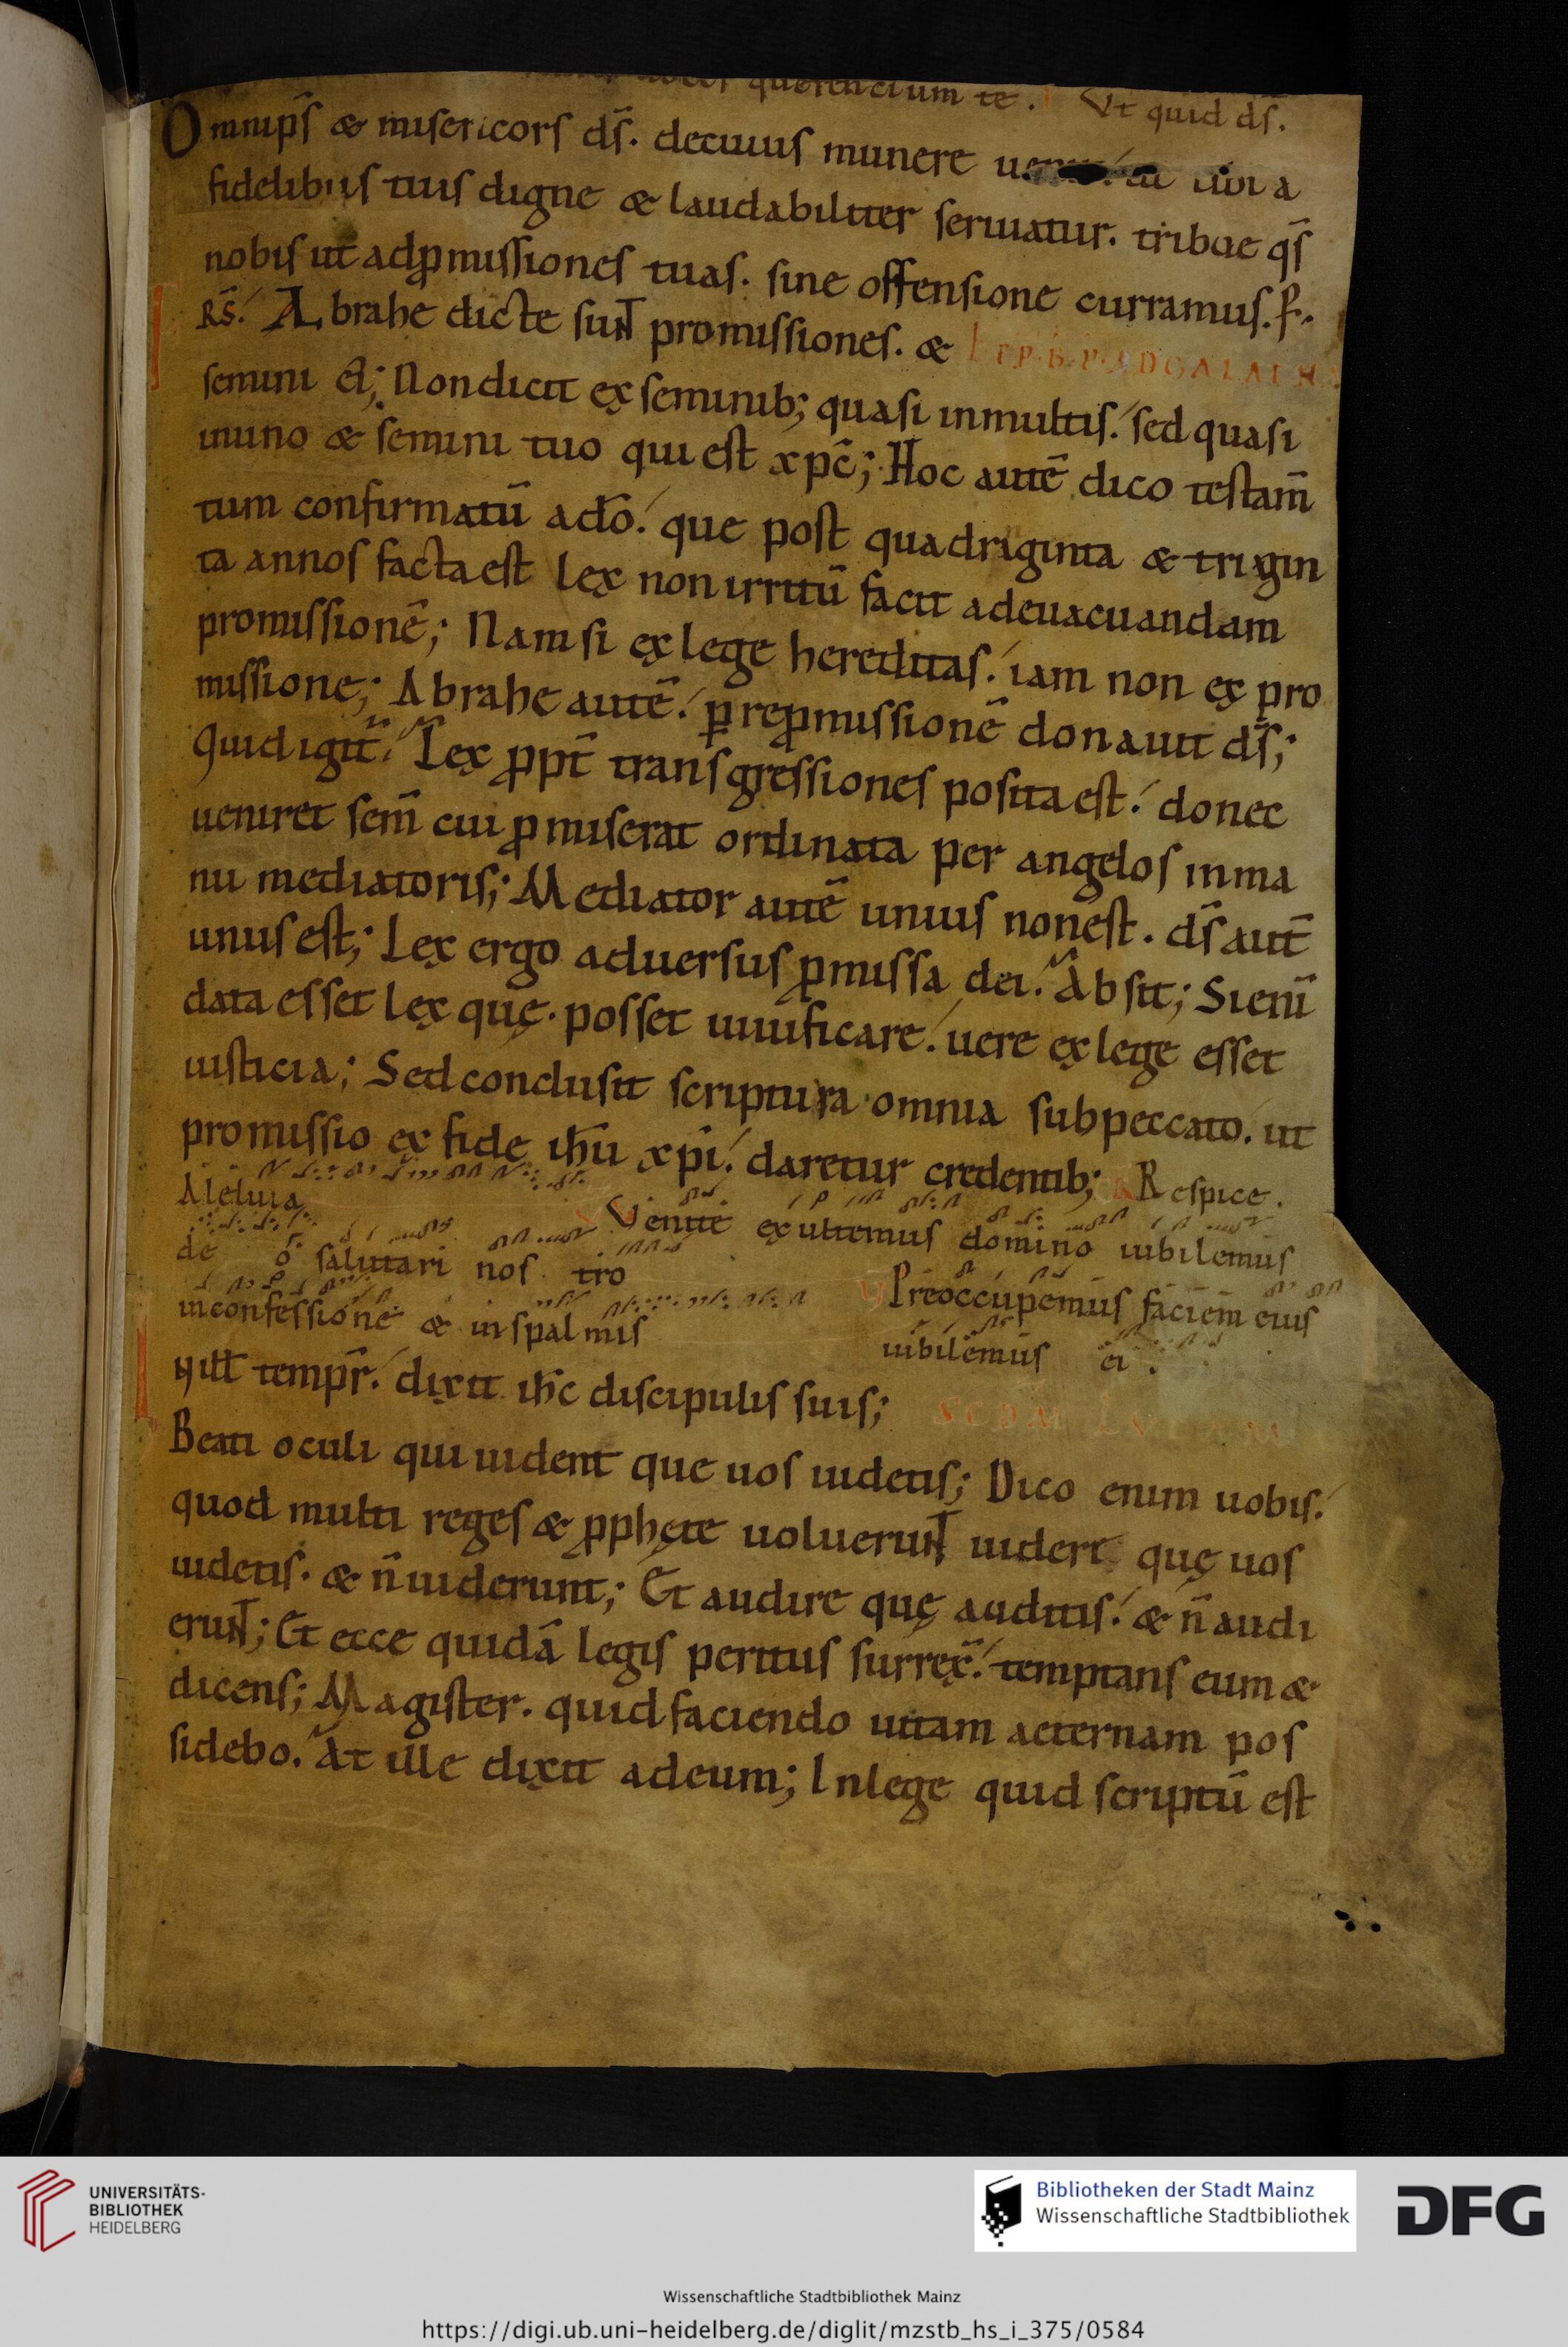 querentium te. Vt quid ds̄.
Omnip̄s & misericors ds̄. decuius munere
fidelibus tuis digne & laudabiliter seruiatur. tribue qs̄
nobis ut adꝓmissiones tuas. sine offensione curramus. ꝑ.
RS̄. Abrahe dicte sunt promissiones. & L EP. B. P. AD GALATH
semini ei; Non dicit ex seminib; quasi inmultis. sed quasi
inuno & semini tuo qui est xpc̄; Hoc autē dico testam̄
tum confirmatū ado̅. que post quadriginta & trigin
ta annos facta est lex non irritū facit adeuacuandam
promissionē; Nam si ex lege hereditas. iam non ex pro
missione; Abrahe autē. ꝑ reꝓmissionē donauit ds̄;
Quid igit̄. Lex ꝓpt̄ transgressiones posita est. donec
ueniret sem̄ cui ꝓmiserat ordinata per angelos inma
nu mediatoris; Mediator autē unius non est. ds̄ aut̄
unus est; Lex ergo aduersus ꝓmissa dei. Absit; Si eni̅
data esset lex quę posset uiuificare. uere ex lege esset
iusticia; Sed conclusit scriptura omnia sub peccato. ut
promissio ex fide ihū xpi̅. daretur credentib; Respice.
Aleluia Venite exultemus domino iubilemus
de o salutari nos tro Preoccupemus faciem eius
inconfessione & inspalmis iubilemus ei.
N ill̄ tempr̄. dixit ihc̄ discipulis suis; SCDM LVCAM
Beati oculi qui uident que uos uidetis; Dico enim uobis.
quod multi reges & ꝓphęte uoluerunt uidere quę uos
uidetis. & n̄ uiderunt; Et audire quę auditis. & n̄ audi
erunt; Et ecce quidā legis peritus surrex̄. temptans eum &
dicens; Magister. quid faciendo uitam aeternam pos
sidebo. At ille dixit adeum; Inlege quid scriptū est
UNIVERSITÄTS-
BIBLIOTHEK
HEIDELBERG
Bibliotheken der Stadt Mainz
Wissenschaftliche Stadtbibliothek
DFG
Wissenschaftliche Stadtbibliothek Mainz
https://digi.ub.uni-heidelberg.de/diglit/mzstb_hs_i_375/0584